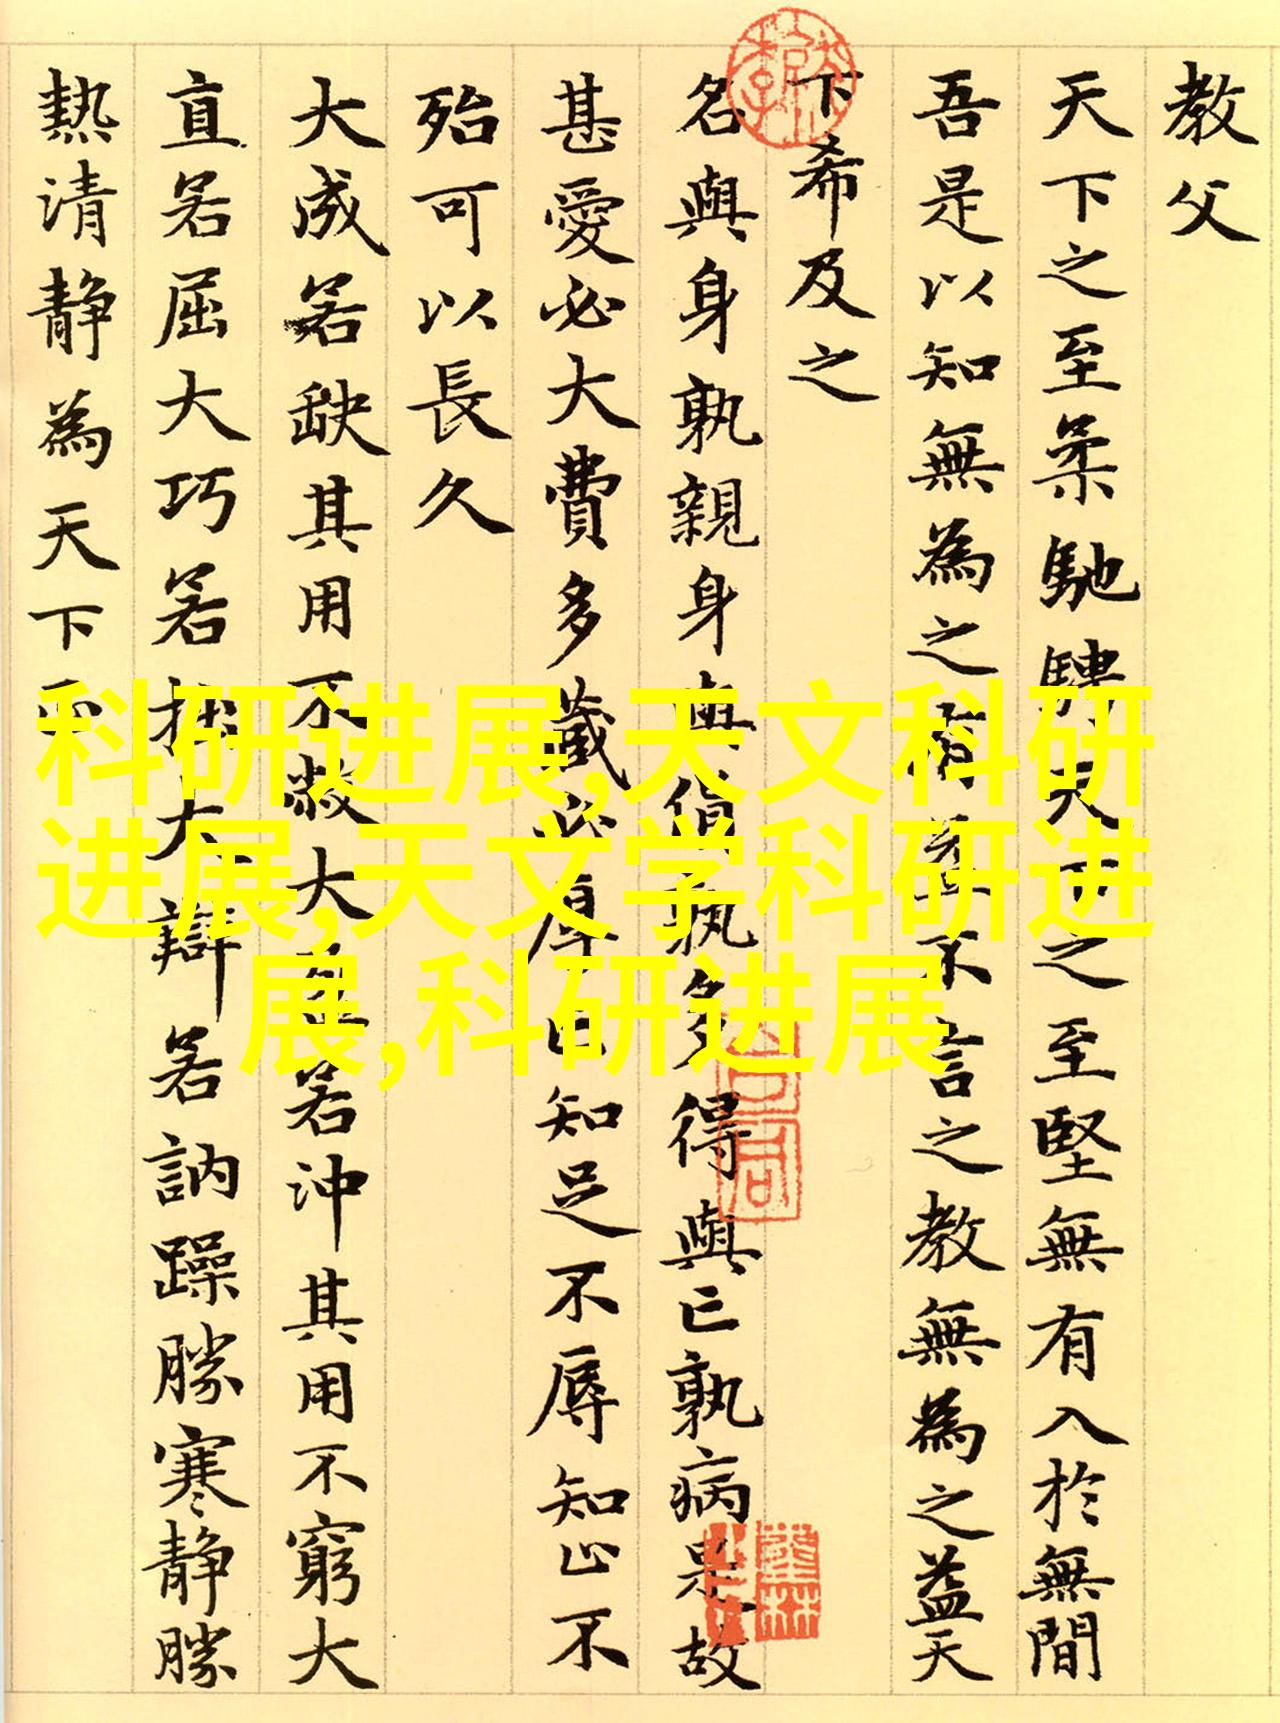 教父
天下之至柔馳騁天下之至堅無有入於無間
吾是以知無為之有益不言之教無為之益天
下希及之
名與身孰親身與貨孰多得與亡孰病是故
甚愛必大費多藏必厚亡知足不辱知止不
殆可以長久
大成若缺其用不敝大盈若沖其用不窮大
直若屈大巧若拙大辯若訥躁勝寒静勝
熱清静為天下正
科研进展,天文科研
进展,天文学科研进
展,科研进展